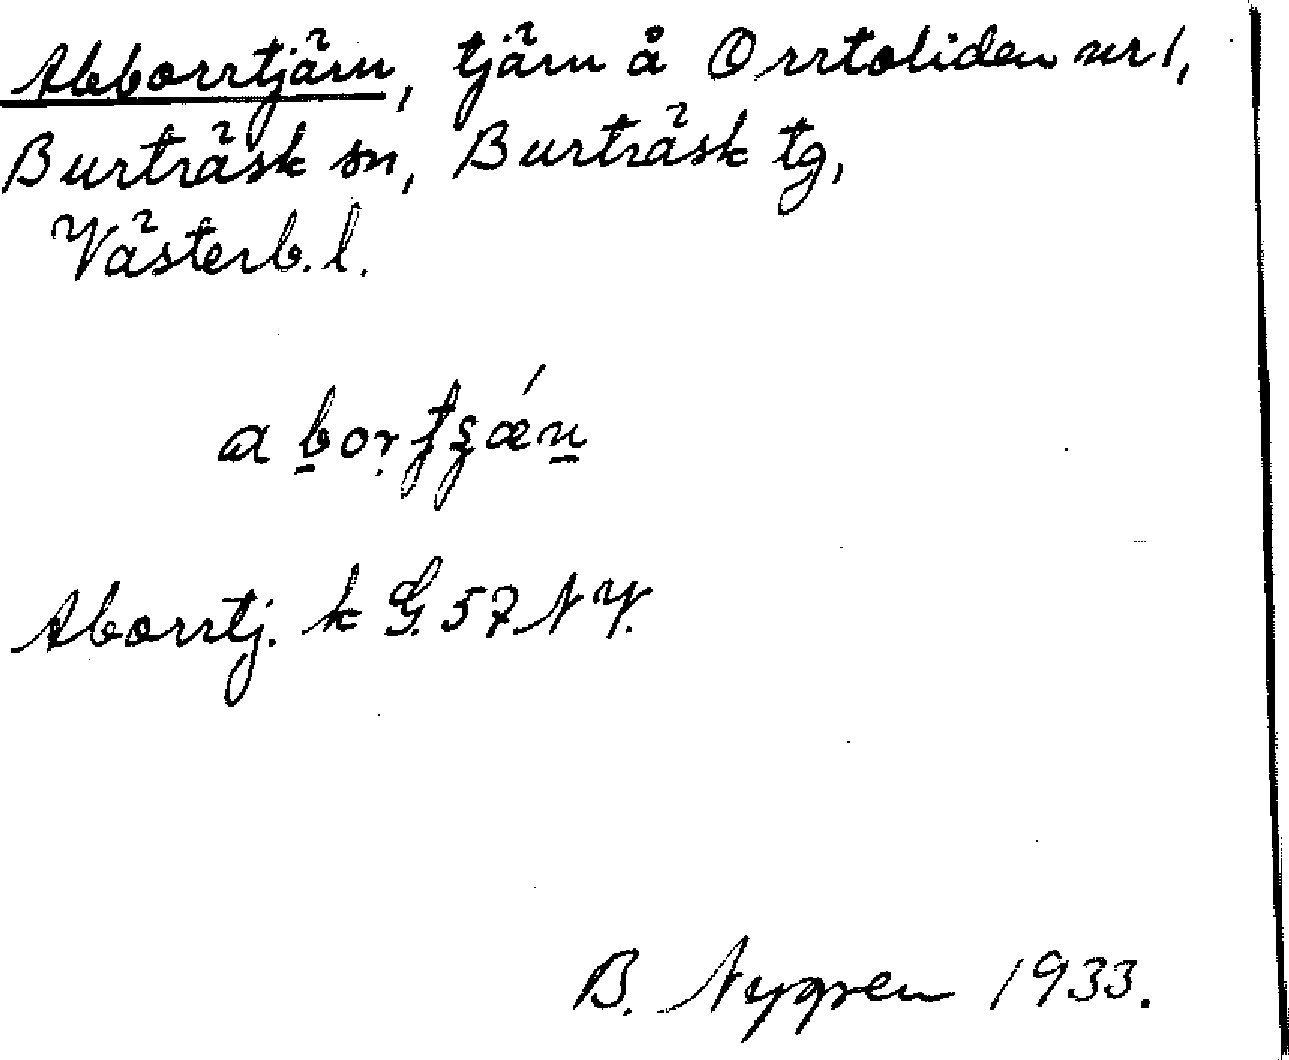 Abborrtjärn, tjärn å Orrtoliden nr 1,
Burträsk sn, Burträsk tg,
Västerb. l.
Aborrtj. k G. 57 NV.
B. Nygren 1933.